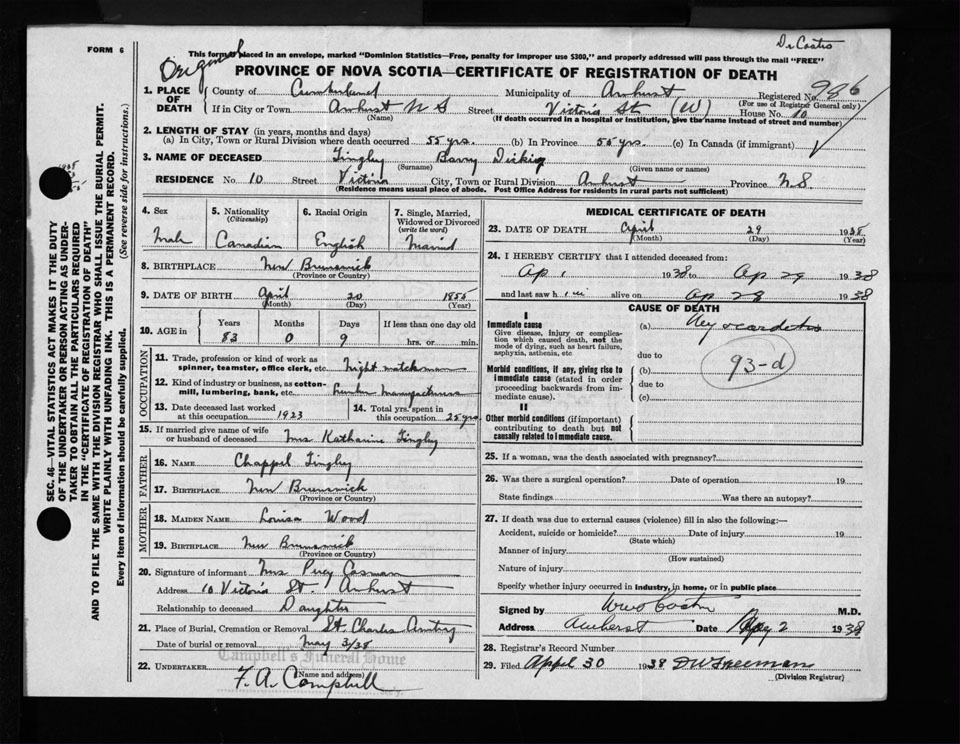 De Costro
FORM 6
This form placed in an envelope, marked "Dominion Statistics—Free, penalty for improper use $300," and properly addressed will pass through the mail "FREE"
Original
PROVINCE OF NOVA SCOTIA—CERTIFICATE OF REGISTRATION OF DEATH
1. PLACE OF DEATH
County of Cumberland Municipality of Amherst Registered No. 986
(For use of Registrar General only)
If in City or Town Amherst N S Street Victoria St (W) House No. 10
(Name) (If death occurred in a hospital or institution, give the name instead of street and number)
2. LENGTH OF STAY (in years, months and days)
(a) In City, Town or Rural Division where death occurred 55 yrs. (b) In Province 55 yrs. (c) In Canada (if immigrant)
3. NAME OF DECEASED Tingley Barry
(Surname) (Given name or names)
RESIDENCE No. 10 Street Victoria City, Town or Rural Division Amherst Province N.S.
(Residence means usual place of abode. Post Office Address for residents in rural parts not sufficient)
4. Sex
Male
5. Nationality
(Citizenship)
Canadian
6. Racial Origin
English
7. Single, Married, Widowed or Divorced
(write the word)
Married
8. BIRTHPLACE New Brunswick
(Province or Country)
9. DATE OF BIRTH April 20 1855
(Month) (Day) (Year)
10. AGE in Years Months Days If less than one day old
83 0 9 hrs. or min.
OCCUPATION
11. Trade, profession or kind of work as
spinner, teamster, office clerk, etc. Night watchman
12. Kind of industry or business, as cotton-
mill, lumbering, bank, etc.
13. Date deceased last worked
at this occupation 1923
14. Total yrs. spent in
this occupation 25 yrs
15. If married give name of wife
or husband of deceased Mrs Katharine Tingley
FATHER
16. NAME Chappel Tingley
17. BIRTHPLACE New Brunswick
(Province or Country)
MOTHER
18. MAIDEN NAME Louisa Wood
19. BIRTHPLACE New Brunswick
(Province or Country)
20. Signature of informant Mrs Percy
Address 10 Victoria St. Amherst
Relationship to deceased Daughter
21. Place of Burial, Cremation or Removal St. Charles
Date of burial or removal May 3/38
Campbell's Funeral Home
22. UNDERTAKER F. A. Campbell
(Name and address)
MEDICAL CERTIFICATE OF DEATH
23. DATE OF DEATH April 29 1938
(Month) (Day) (Year)
24. I HEREBY CERTIFY that I attended deceased from:
Ap 1 1938 to Ap 29 1938
and last saw him alive on Ap 28 1938
CAUSE OF DEATH
I
Immediate cause
Give disease, injury or complica-
tion which caused death, not the
mode of dying, such as heart failure,
asphyxia, asthenia, etc
(a) Myocarditis
due to
Morbid conditions, if any, giving rise to
immediate cause (stated in order
proceeding backwards from im-
mediate cause).
(b)
due to
(c)
93-d
II
Other morbid conditions (if important)
contributing to death but not
causally related to immediate cause.
25. If a woman, was the death associated with pregnancy?
26. Was there a surgical operation? Date of operation 19
State findings Was there an autopsy?
27. If death was due to external causes (violence) fill in also the following:—
Accident, suicide or homicide? Date of injury 19
(State which)
Manner of injury
(How sustained)
Nature of injury
Specify whether injury occurred in industry, in home, or in public place
Signed by M.D.
Address Amherst Date May 2 1938
28. Registrar's Record Number
29. Filed April 30 1938 D W Freeman
(Division Registrar)
SEC. 46—VITAL STATISTICS ACT MAKES IT THE DUTY
OF THE UNDERTAKER OR PERSON ACTING AS UNDER-
TAKER TO OBTAIN ALL THE PARTICULARS REQUIRED
IN THE "CERTIFICATE OF REGISTRATION OF DEATH"
AND TO FILE THE SAME WITH THE DIVISION REGISTRAR WHO SHALL ISSUE THE BURIAL PERMIT.
WRITE PLAINLY WITH UNFADING INK. THIS IS A PERMANENT RECORD.
Every item of information should be carefully supplied. (See reverse side for instructions.)